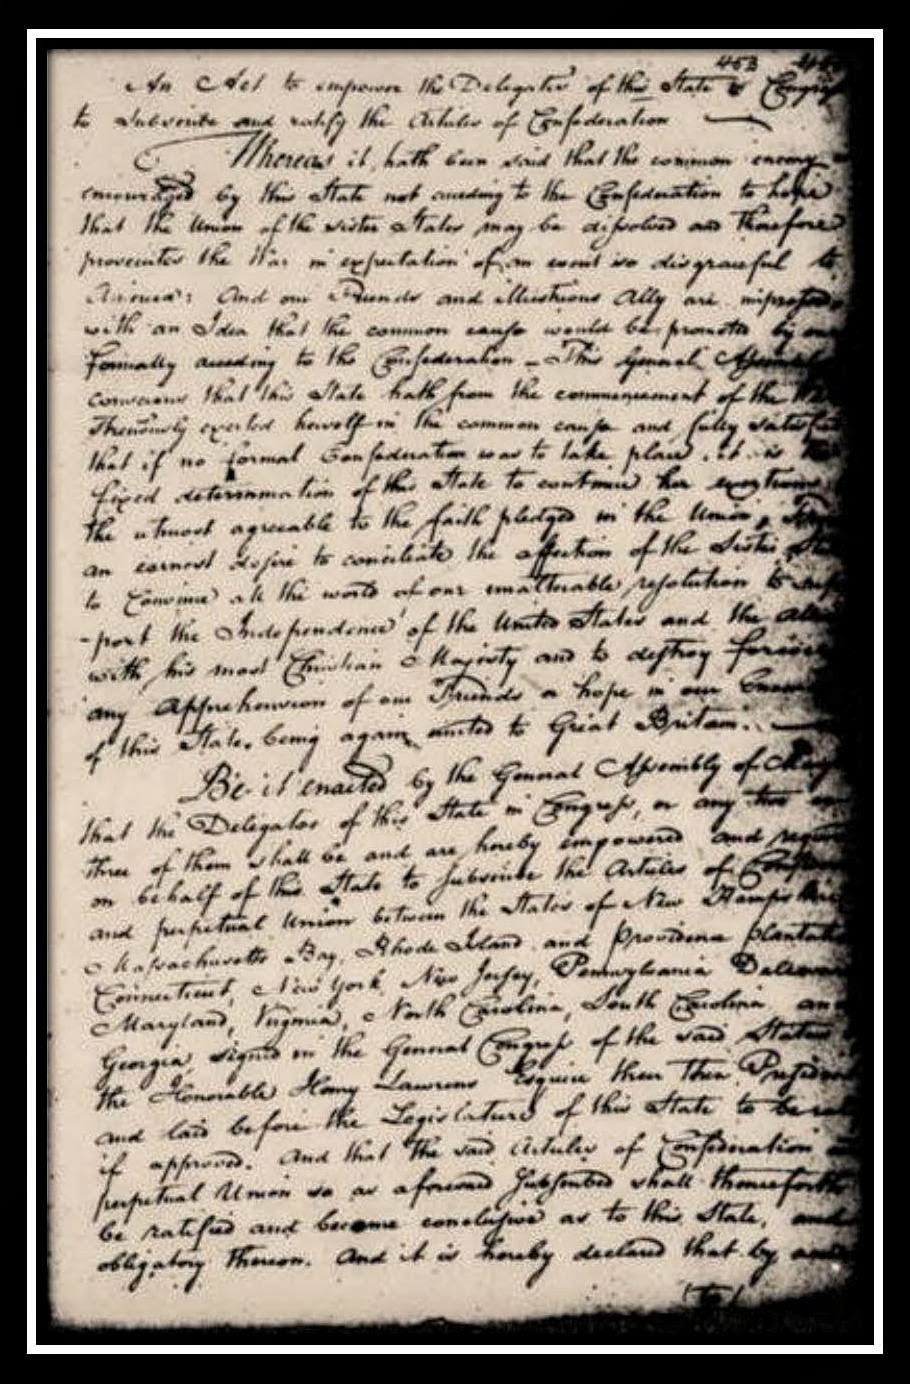 453
An Act to empower the Delegates of this State in Congress
to subscribe and ratify the Articles of Confederation
Whereas it hath been said that the common enemy
encouraged by this State not acceding to the Confederation to hope
that the Union of the sister States may be dissolved and therefore
prosecutes the War in expectation of an event so disgraceful to
America: And our Friends and illustrious Ally are impressed
with an Idea that the common cause would be promoted by our
formally acceding to the Confederation - This General Assembly
conscious that this State hath from the commencement of the War
strenuously exerted herself in the common cause and fully satisfied
that if no formal Confederation was to take place, it is the
fixed determination of this State to continue her exertions
the utmost agreeable to the faith pledged in the Union, From
an earnest desire to conciliate the affection of the Sister States
to Convince all the world of our unalterable resolution to sup
-port the Independence of the United States and the Alli
with his most Christian Majesty and to destroy forever
any Apprehension of our Friends or hope in our Enemies
of this State being again united to Great Britain.
Be it enacted by the General Assembly of Mary
that the Delegates of this State in Congress, or any two or
three of them shall be and are hereby empowered and required
on behalf of this State to subscribe the Articles of Confedera
and perpetual Union between the States of New Hampshire
Massachusetts Bay, Rhode Island and Providence Plantati
Connecticut, New York, New Jersey, Pennsylvania Delaware
Maryland, Virginia, North Carolina, South Carolina and
Georgia, signed in the General Congress of the said States
the Honorable Henry Lawrens Esquire their then President
and laid before the Legislature of this State to be rat
if approved. And that the said Articles of Confederation
perpetual Union so as aforesaid Subscribed shall thenceforth
be ratified and become conclusive as to this State, and
obligatory thereon. And it is hereby declared that by